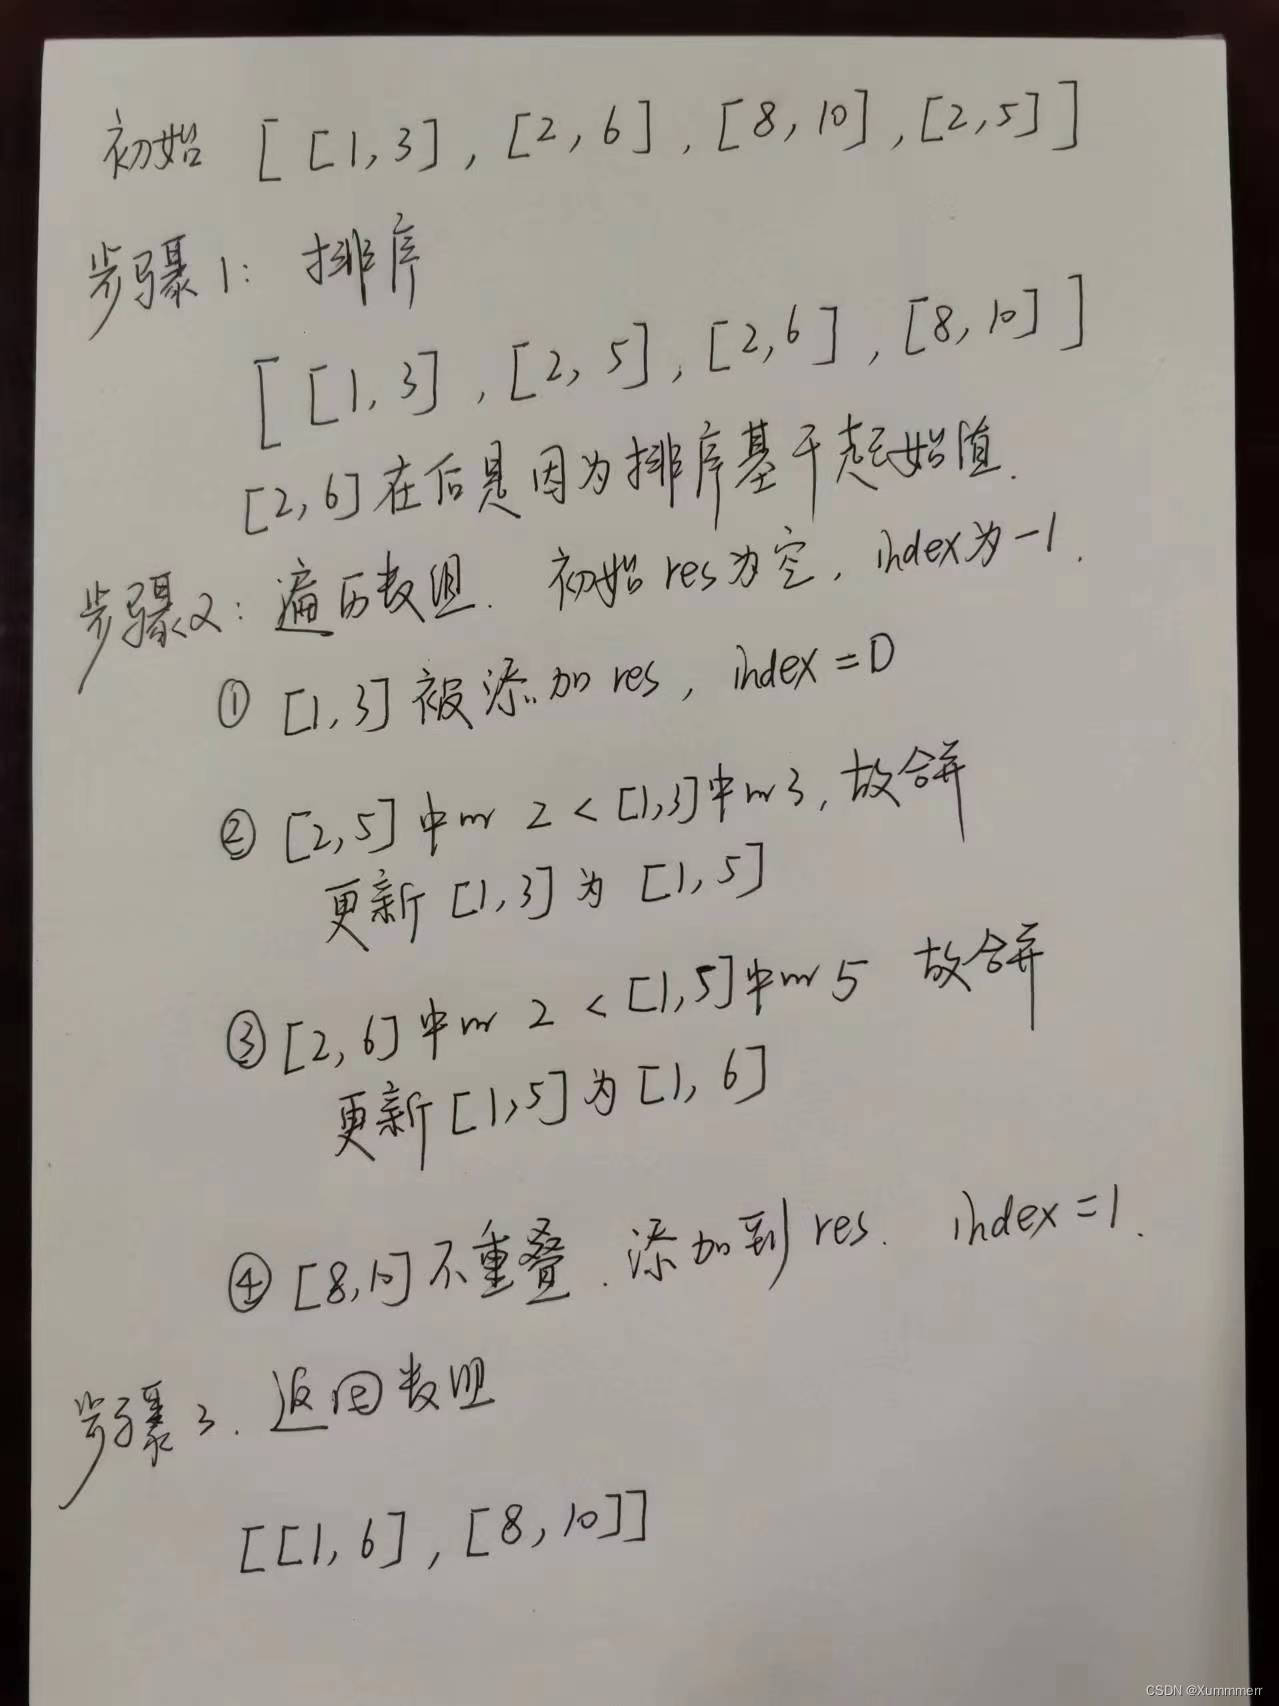 初始 [ [1,3] , [2,6] , [8,10] , [2,5] ]
步骤1: 排序
[ [1,3] , [2,5] , [2,6] , [8,10] ]
[2,6] 在后是因为排序基于起始值.
步骤2: 遍历数组. 初始 res 为空, index为-1.
① [1,3] 被添加 res, index=0
② [2,5] 中的 2 < [1,3]中的3, 故合并
更新 [1,3] 为 [1,5]
③ [2,6] 中的 2 < [1,5]中的5 故合并
更新 [1,5] 为 [1,6]
④ [8,10] 不重叠. 添加到 res. index=1.
步骤3. 返回数组
[[1,6] , [8,10]]
CSDN @Xummmerr